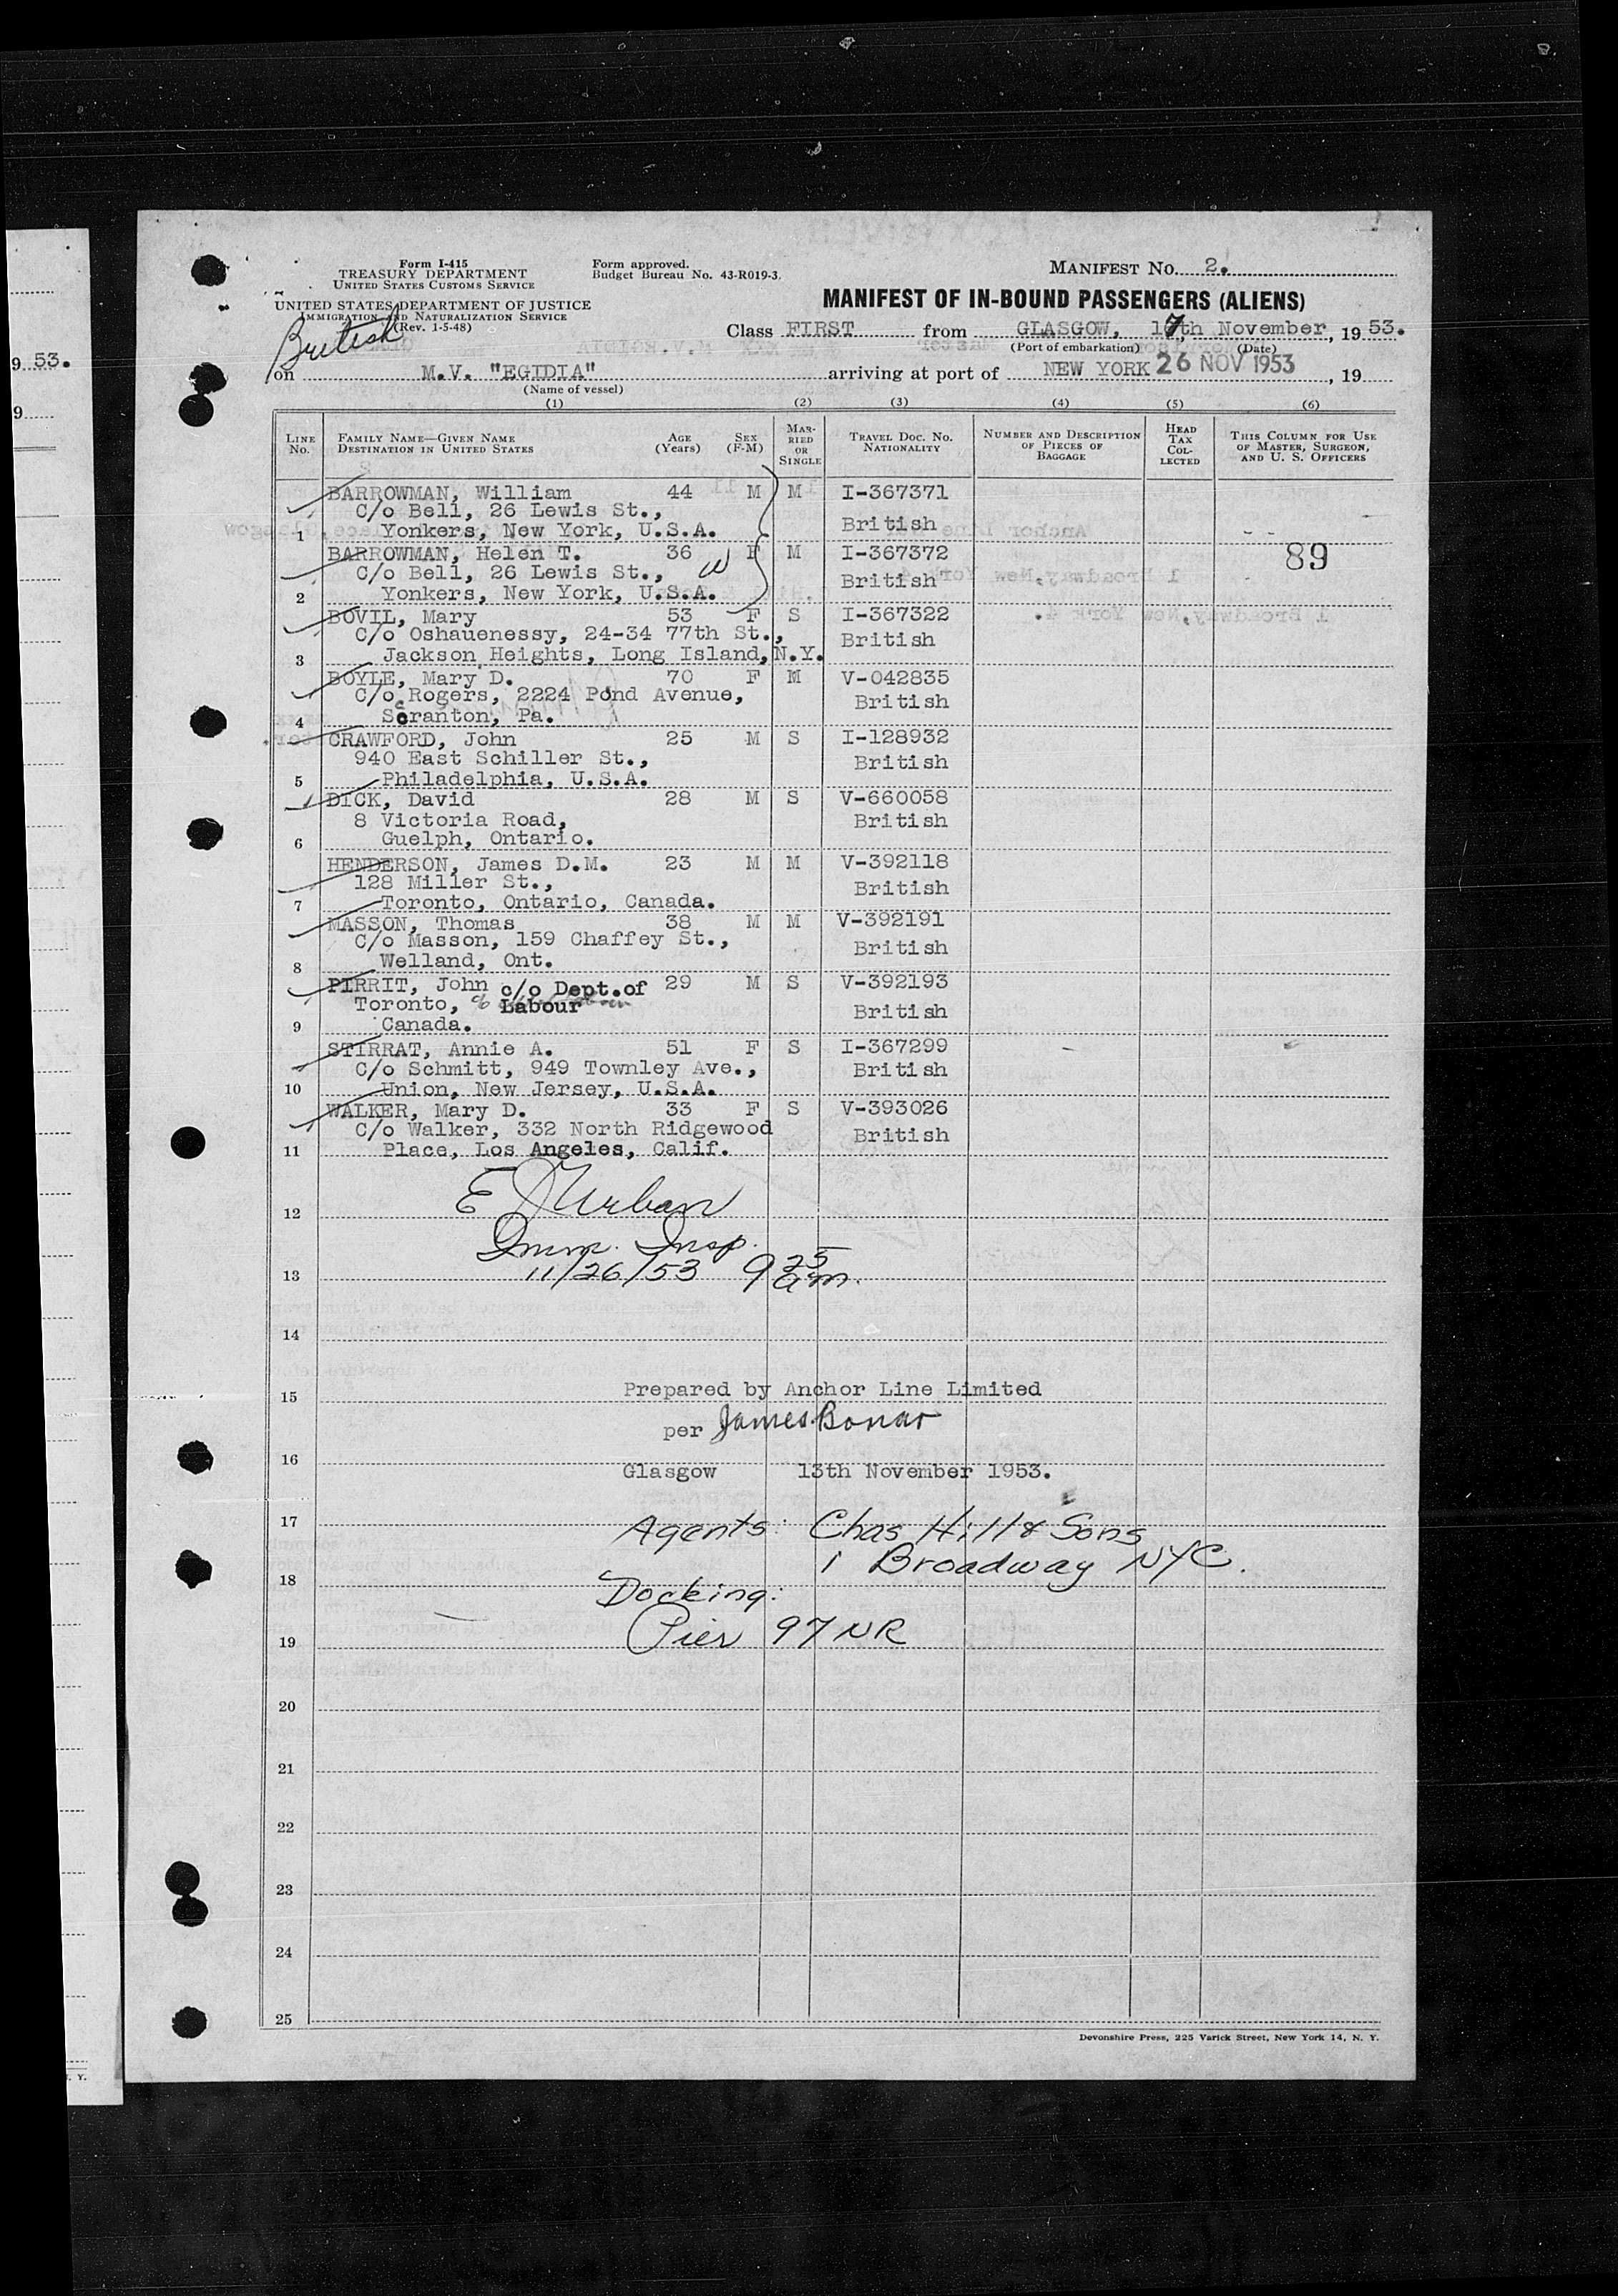 Form I-415
TREASURY DEPARTMENT
UNITED STATES CUSTOMS SERVICE
UNITED STATES DEPARTMENT OF JUSTICE
IMMIGRATION AND NATURALIZATION SERVICE
(Rev. 1-5-48)
Form approved.
Budget Bureau No. 43-R019-3.
MANIFEST NO. 2.
MANIFEST OF IN-BOUND PASSENGERS (ALIENS)
British
Class FIRST from GLASGOW, 17th November, 19 53.
(Port of embarkation) (Date)
on M.V. "EGIDIA" arriving at port of NEW YORK 26 NOV 1953, 19
(Name of vessel)
(1) (2) (3) (4) (5) (6)
LINE NO. FAMILY NAME—GIVEN NAME DESTINATION IN UNITED STATES AGE (Years) SEX (F-M) MARRIED OR SINGLE TRAVEL DOC. NO. NATIONALITY NUMBER AND DESCRIPTION OF PIECES OF BAGGAGE HEAD TAX COLLECTED THIS COLUMN FOR USE OF MASTER, SURGEON, AND U. S. OFFICERS
BARROWMAN, William 44 M M I-367371
C/o Bell, 26 Lewis St.,
1 Yonkers, New York, U.S.A. British
BARROWMAN, Helen T. 36 F M I-367372 89
C/o Bell, 26 Lewis St., W British
2 Yonkers, New York, U.S.A.
BOVIL, Mary 53 F S I-367322
C/o Oshauenessy, 24-34 77th St., British
3 Jackson Heights, Long Island, N.Y.
BOYLE, Mary D. 70 F M V-042835
C/o Rogers, 2224 Pond Avenue, British
4 Scranton, Pa.
CRAWFORD, John 25 M S I-128932
940 East Schiller St., British
5 Philadelphia, U.S.A.
DICK, David 28 M S V-660058
8 Victoria Road, British
6 Guelph, Ontario.
HENDERSON, James D.M. 23 M M V-392118
128 Miller St., British
7 Toronto, Ontario, Canada.
MASSON, Thomas 38 M M V-392191
C/o Masson, 159 Chaffey St., British
8 Welland, Ont.
PIRRIT, John c/o Dept. of 29 M S V-392193
Toronto, Labour British
9 Canada.
STIRRAT, Annie A. 51 F S I-367299
C/o Schmitt, 949 Townley Ave., British
10 Union, New Jersey, U.S.A.
WALKER, Mary D. 33 F S V-393026
C/o Walker, 332 North Ridgewood British
11 Place, Los Angeles, Calif.
12 E J Urban
Imm. Insp.
13 11/26/53 9 25 am.
14
15 Prepared by Anchor Line Limited
per James Bonar
16
Glasgow 13th November 1953.
17 Agents: Chas Hill & Sons
1 Broadway NYC.
18
Docking:
19 Pier 97 NR
20
21
22
23
24
25
Devonshire Press, 225 Varick Street, New York 14, N. Y.
9 53.
9
. Y.